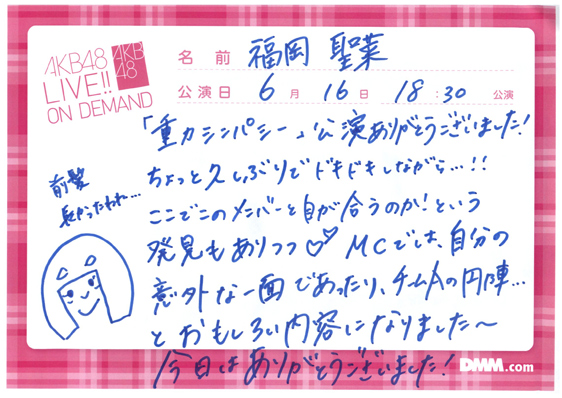 AKB48
LIVE!!
ON DEMAND
AKB
48
名前 福岡 聖菜
公演日 6月 16日 18:30 公演
「重力シンパシー」公演ありがとうございました!
ちょっと久しぶりでドキドキしながら…!!
ここでこのメンバーと目が合うのか!という
発見もありつつ♡♡ MCでは、自分の
意外な一面であったり、チームAの円陣…
とおもしろい内容になりました〜
今日はありがとうございました!
前髪
長かったわね…
DMM.com